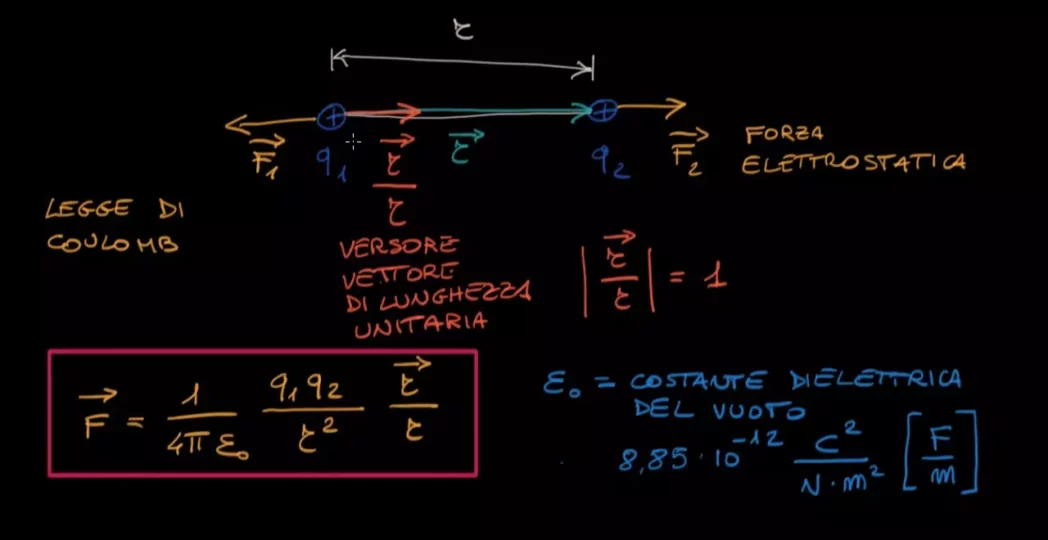 r
F₁ q₁ r/r r q₂ F₂ FORZA
ELETTROSTATICA
LEGGE DI
COULOMB
VERSORE
VETTORE
DI LUNGHEZZA
UNITARIA
|r⃗/r| = 1
F⃗ = 1/4πε₀ q₁q₂/r² r⃗/r
ε₀ = COSTANTE DIELETTRICA
DEL VUOTO
8,85·10⁻¹² C²/N·m² [F/m]